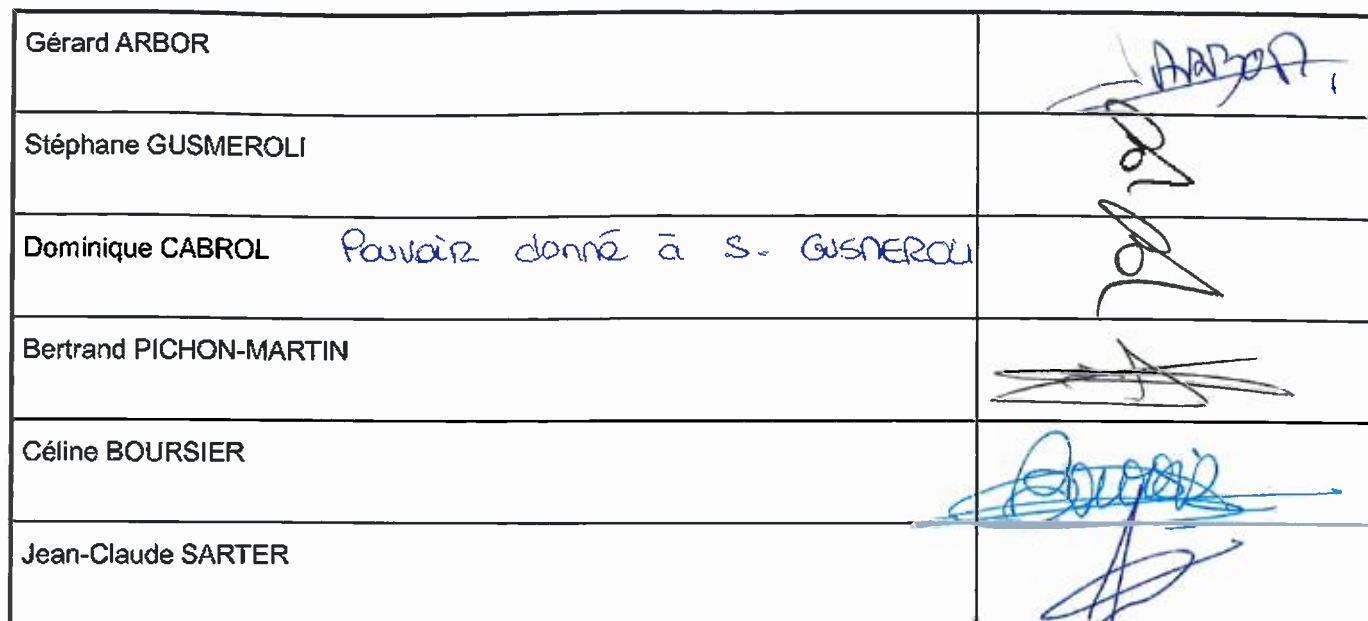 Gérard ARBOR
ARBOR
Stéphane GUSMEROLI
Dominique CABROL Pouvoir donné à S. GUSMEROLI
Bertrand PICHON-MARTIN
Céline BOURSIER
Jean-Claude SARTER